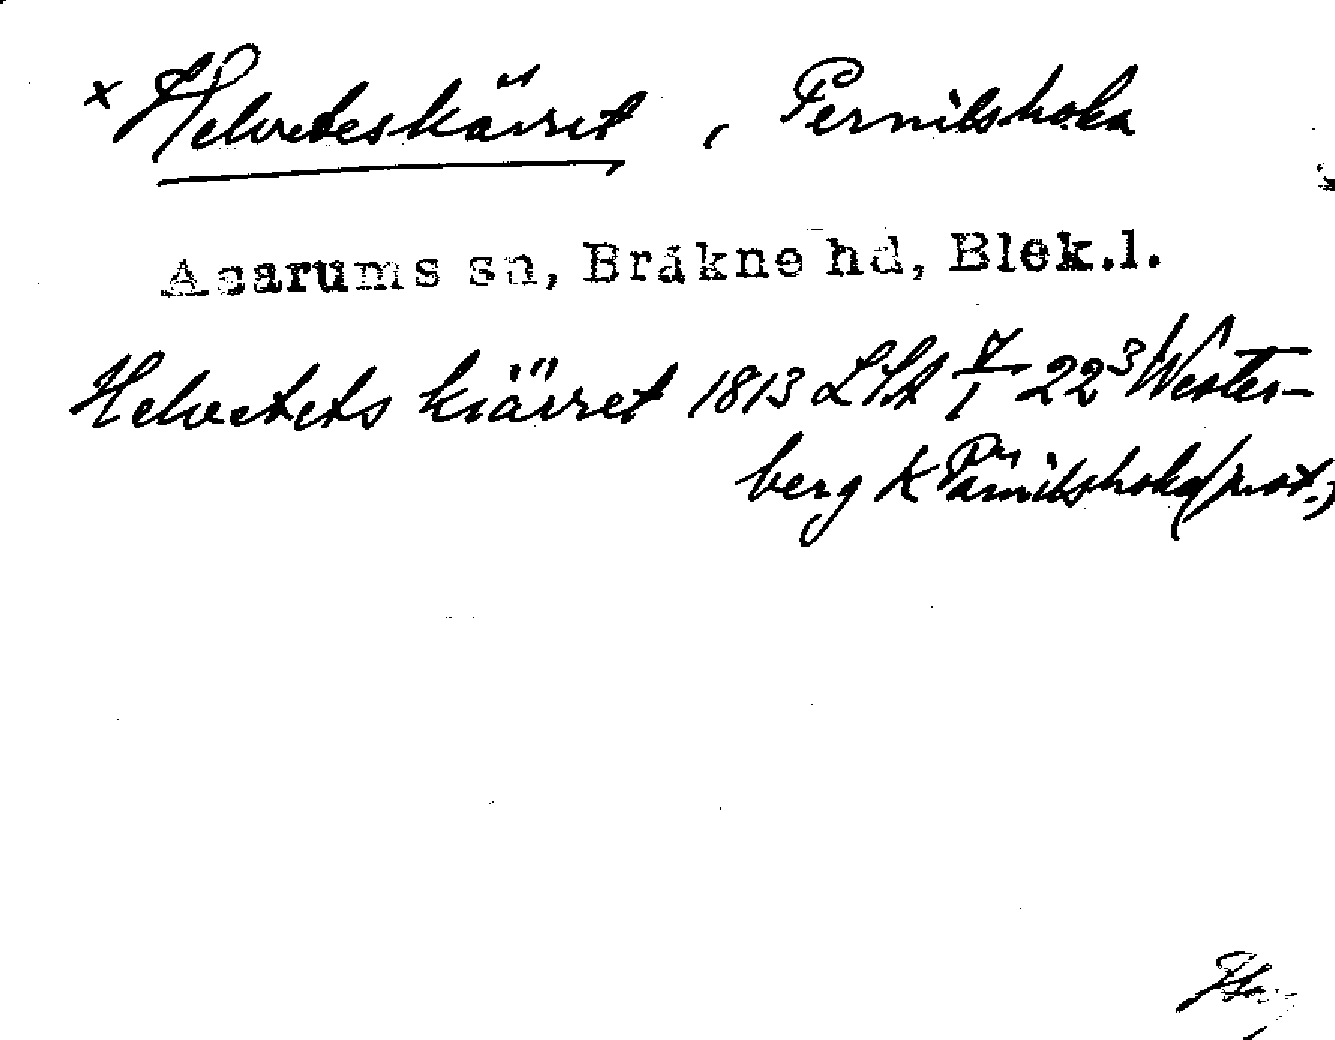 x Helveteskärret, Pernilshoka
Asarums sn, Bräkne hd, Blek.l.
Helvetets kiärret 1813 LSA 7/1 22³ Wester-
berg K Pärnilshoka (prot.)